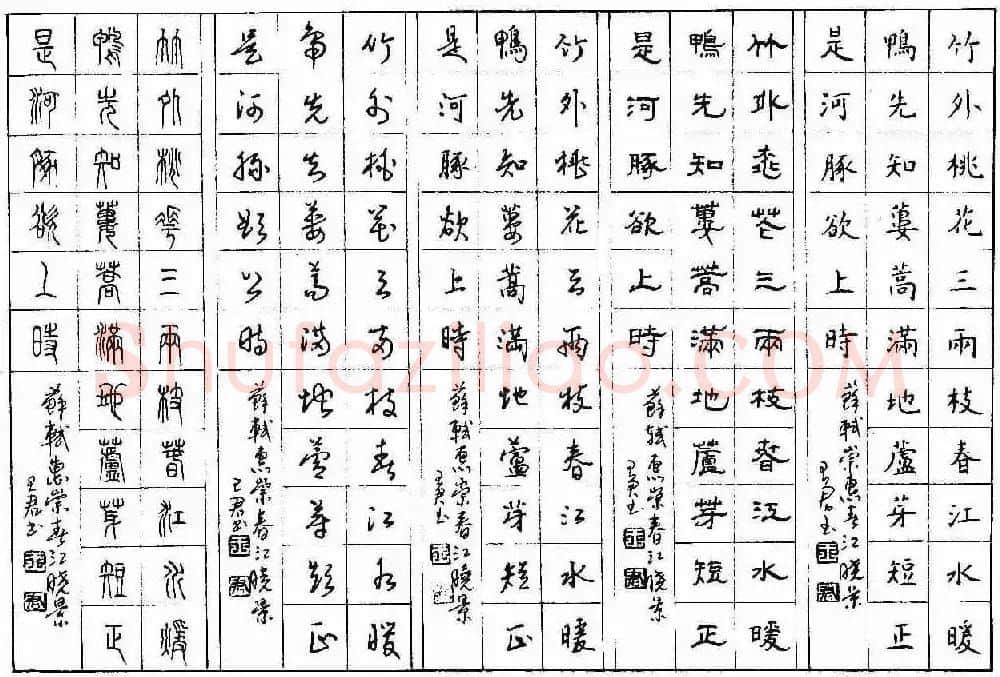 竹外桃花三兩枝春江水暖
鴨先知蔞蒿滿地蘆芽短正
是河豚欲上時
蘇軾崇惠春江曉景
竹外桃花三兩枝春江水暖
鴨先知蔞蒿滿地蘆芽短正
是河豚欲上時
蘇軾惠崇春江曉景
竹外桃花三兩枝春江水暖
鴨先知蔞蒿滿地蘆芽短正
是河豚欲上時
蘇軾惠崇春江曉景
竹外桃花三兩枝春江水暖
鴨先知蔞蒿滿地蘆芽短正
是河豚欲上時
蘇軾惠崇春江曉景
竹外桃花三兩枝春江水暖
鴨先知蔞蒿滿地蘆芽短正
是河豚欲上時
蘇軾惠崇春江曉景
Shufaziliao.COM